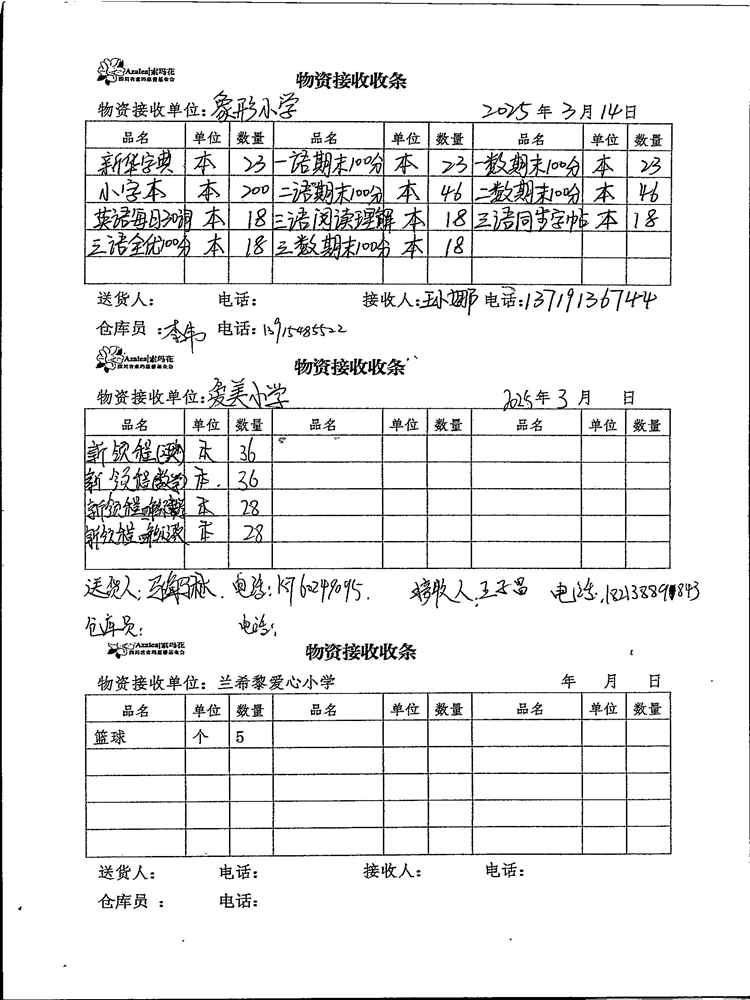 Azalea|索玛花
四川省索玛慈善基金会
物资接收收条
物资接收单位：象形小学 2025年3月14日
品名 单位 数量 品名 单位 数量 品名 单位 数量
新华字典 本 23 一语期末100分 本 23 一数期末100分 本 23
小字本 本 200 二语期末100分 本 46 二数期末100分 本 46
英语每日30词 本 18 三语阅读理解 本 18 三语同步字帖 本 18
三语全优100分 本 18 三数期末100分 本 18
送货人： 电话： 接收人：王小娜 电话：13719136744
仓库员：李伟 电话：13915485522
Azalea|索玛花
四川省索玛慈善基金会
物资接收收条
物资接收单位：爱美小学 2025年3月 日
品名 单位 数量 品名 单位 数量 品名 单位 数量
新领程 本 36
新领程(数学) 本 36
新领程 本 28
新领程 本 28
送货人： 电话： 接收人：王子昌 电话：
仓库员： 电话：
Azalea|索玛花
四川省索玛慈善基金会
物资接收收条
物资接收单位：兰希黎爱心小学 年 月 日
品名 单位 数量 品名 单位 数量 品名 单位 数量
篮球 个 5
送货人： 电话： 接收人： 电话：
仓库员： 电话：